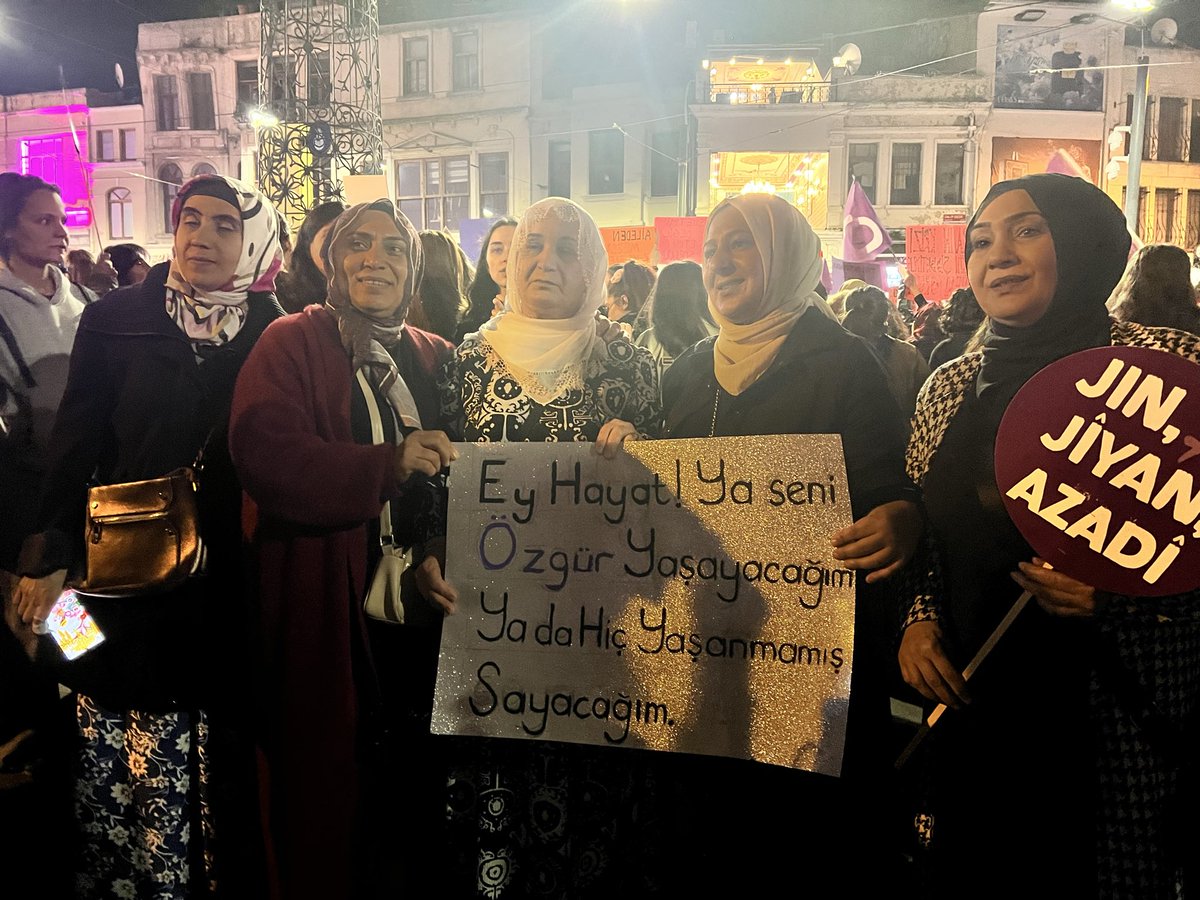 Ey Hayat! Ya seni
Özgür Yaşayacağım
Ya da Hiç Yaşanmamış
Sayacağım.
JIN,
JÎYAN,
AZADÎ
AİLEDEN